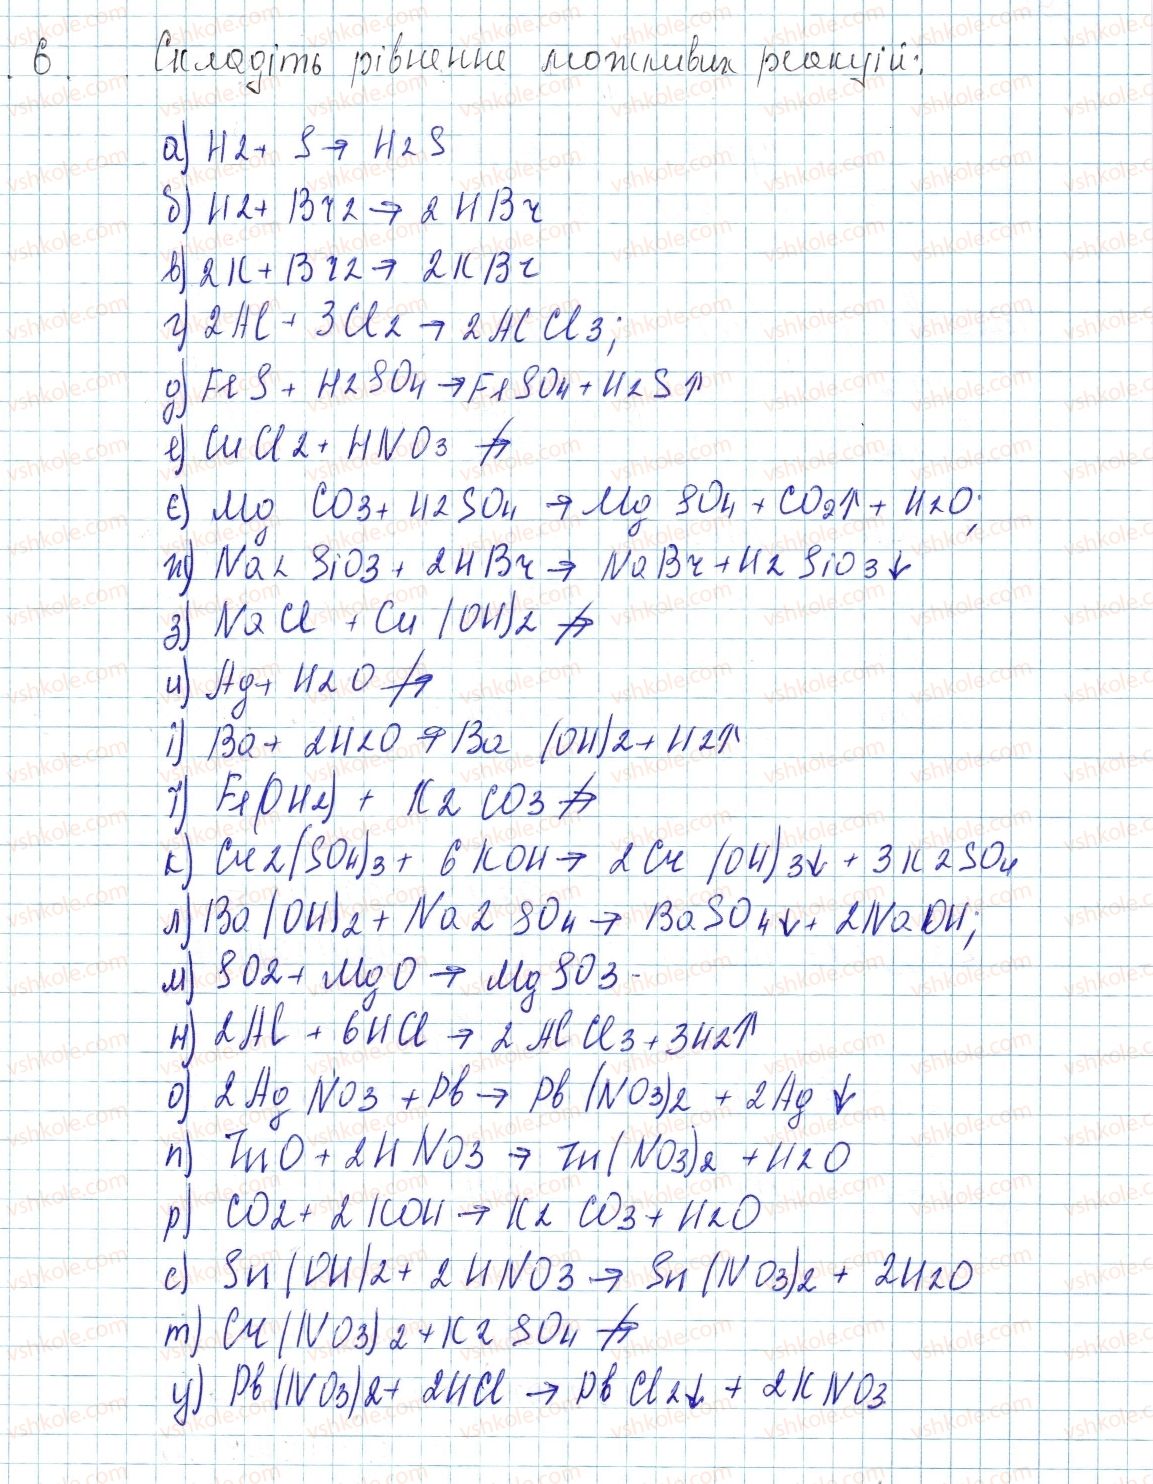 6. Складіть рівненне можливих реакцій:
а) H2 + S → H2S
б) H2 + Br2 → 2HBr
в) 2K + Br2 → 2KBr
г) 2Al + 3Cl2 → 2AlCl3;
д) FeS + H2SO4 → FeSO4 + H2S↑
е) CuCl2 + HNO3 ↛
є) MgCO3 + H2SO4 → MgSO4 + CO2↑ + H2O;
ж) Na2SiO3 + 2HBr → NaBr + H2SiO3↓
з) NaCl + Cu(OH)2 ↛
и) Ag + H2O ↛
і) Ba + 2H2O → Ba(OH)2 + H2↑
ї) Fe(OH2) + K2CO3 ↛
к) Cr2(SO4)3 + 6KOH → 2Cr(OH)3↓ + 3K2SO4
л) Ba(OH)2 + Na2SO4 → BaSO4↓ + 2NaOH;
м) SO2 + MgO → MgSO3
н) 2Al + 6HCl → 2AlCl3 + 3H2↑
о) 2AgNO3 + Pb → Pb(NO3)2 + 2Ag↓
п) ZnO + 2HNO3 → Zn(NO3)2 + H2O
р) CO2 + 2KOH → K2CO3 + H2O
с) Sn(OH)2 + 2HNO3 → Sn(NO3)2 + 2H2O
т) Cr(NO3)2 + K2SO4 ↛
у) Pb(NO3)2 + 2HCl → PbCl2↓ + 2KNO3